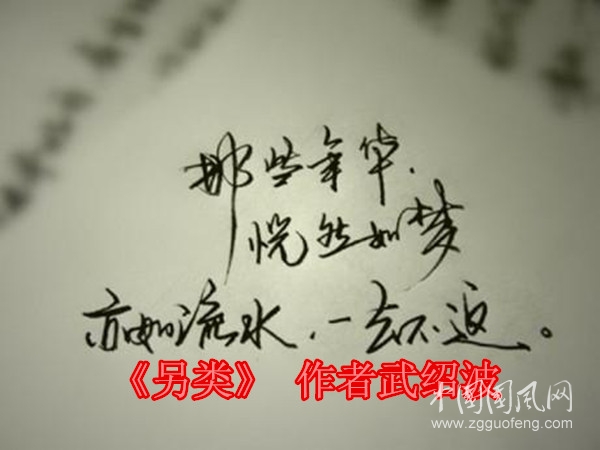 那些年华.
恍然如梦
亦如流水.一去不返。
《另类》 作者武绍波
中国国风网
www.zgguofeng.com